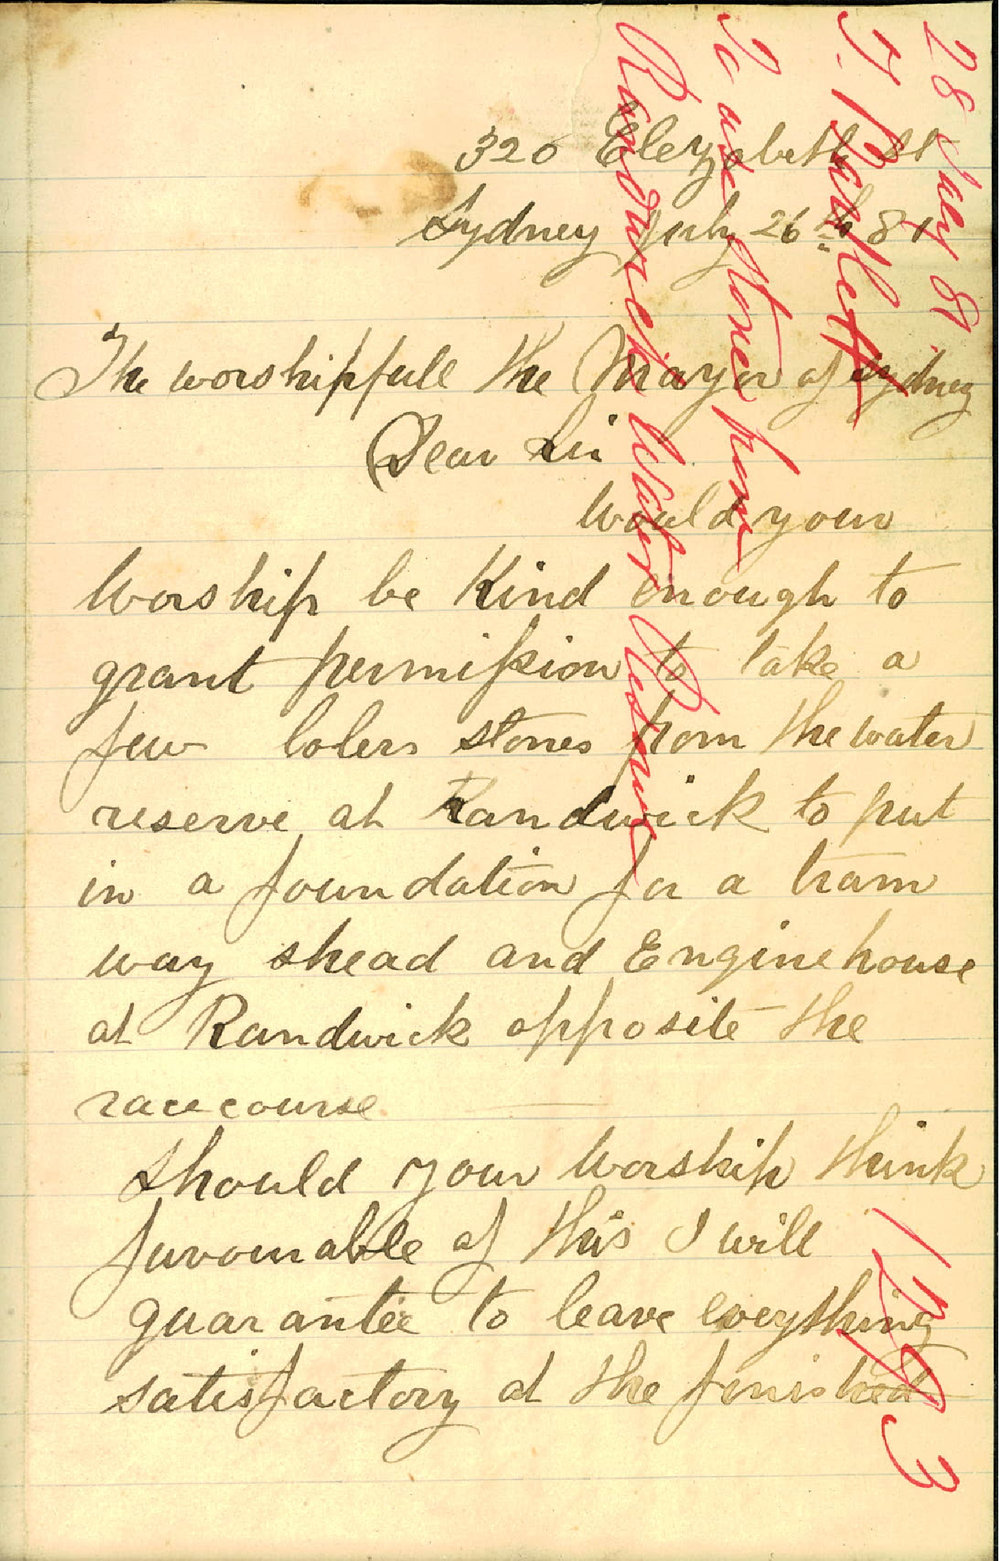 320 Elezabeth St
Sydney July 26th 81
The worshipfull the Mayor of Sydney
Dear Sir
Would your
Worship be Kind enough to
grant permission to take a
few lolers stones from the water
reserve at Randwick to put
in a foundation for a tram
way shead and Enginehouse
at Randwick opposite the
racecourse
Should your Worship think
favourable of this I will
guarantee to leave everything
satisfactory at the finished
28 July 81
J. Bartlett
To use stones from
Randwick Water Reserve
1293